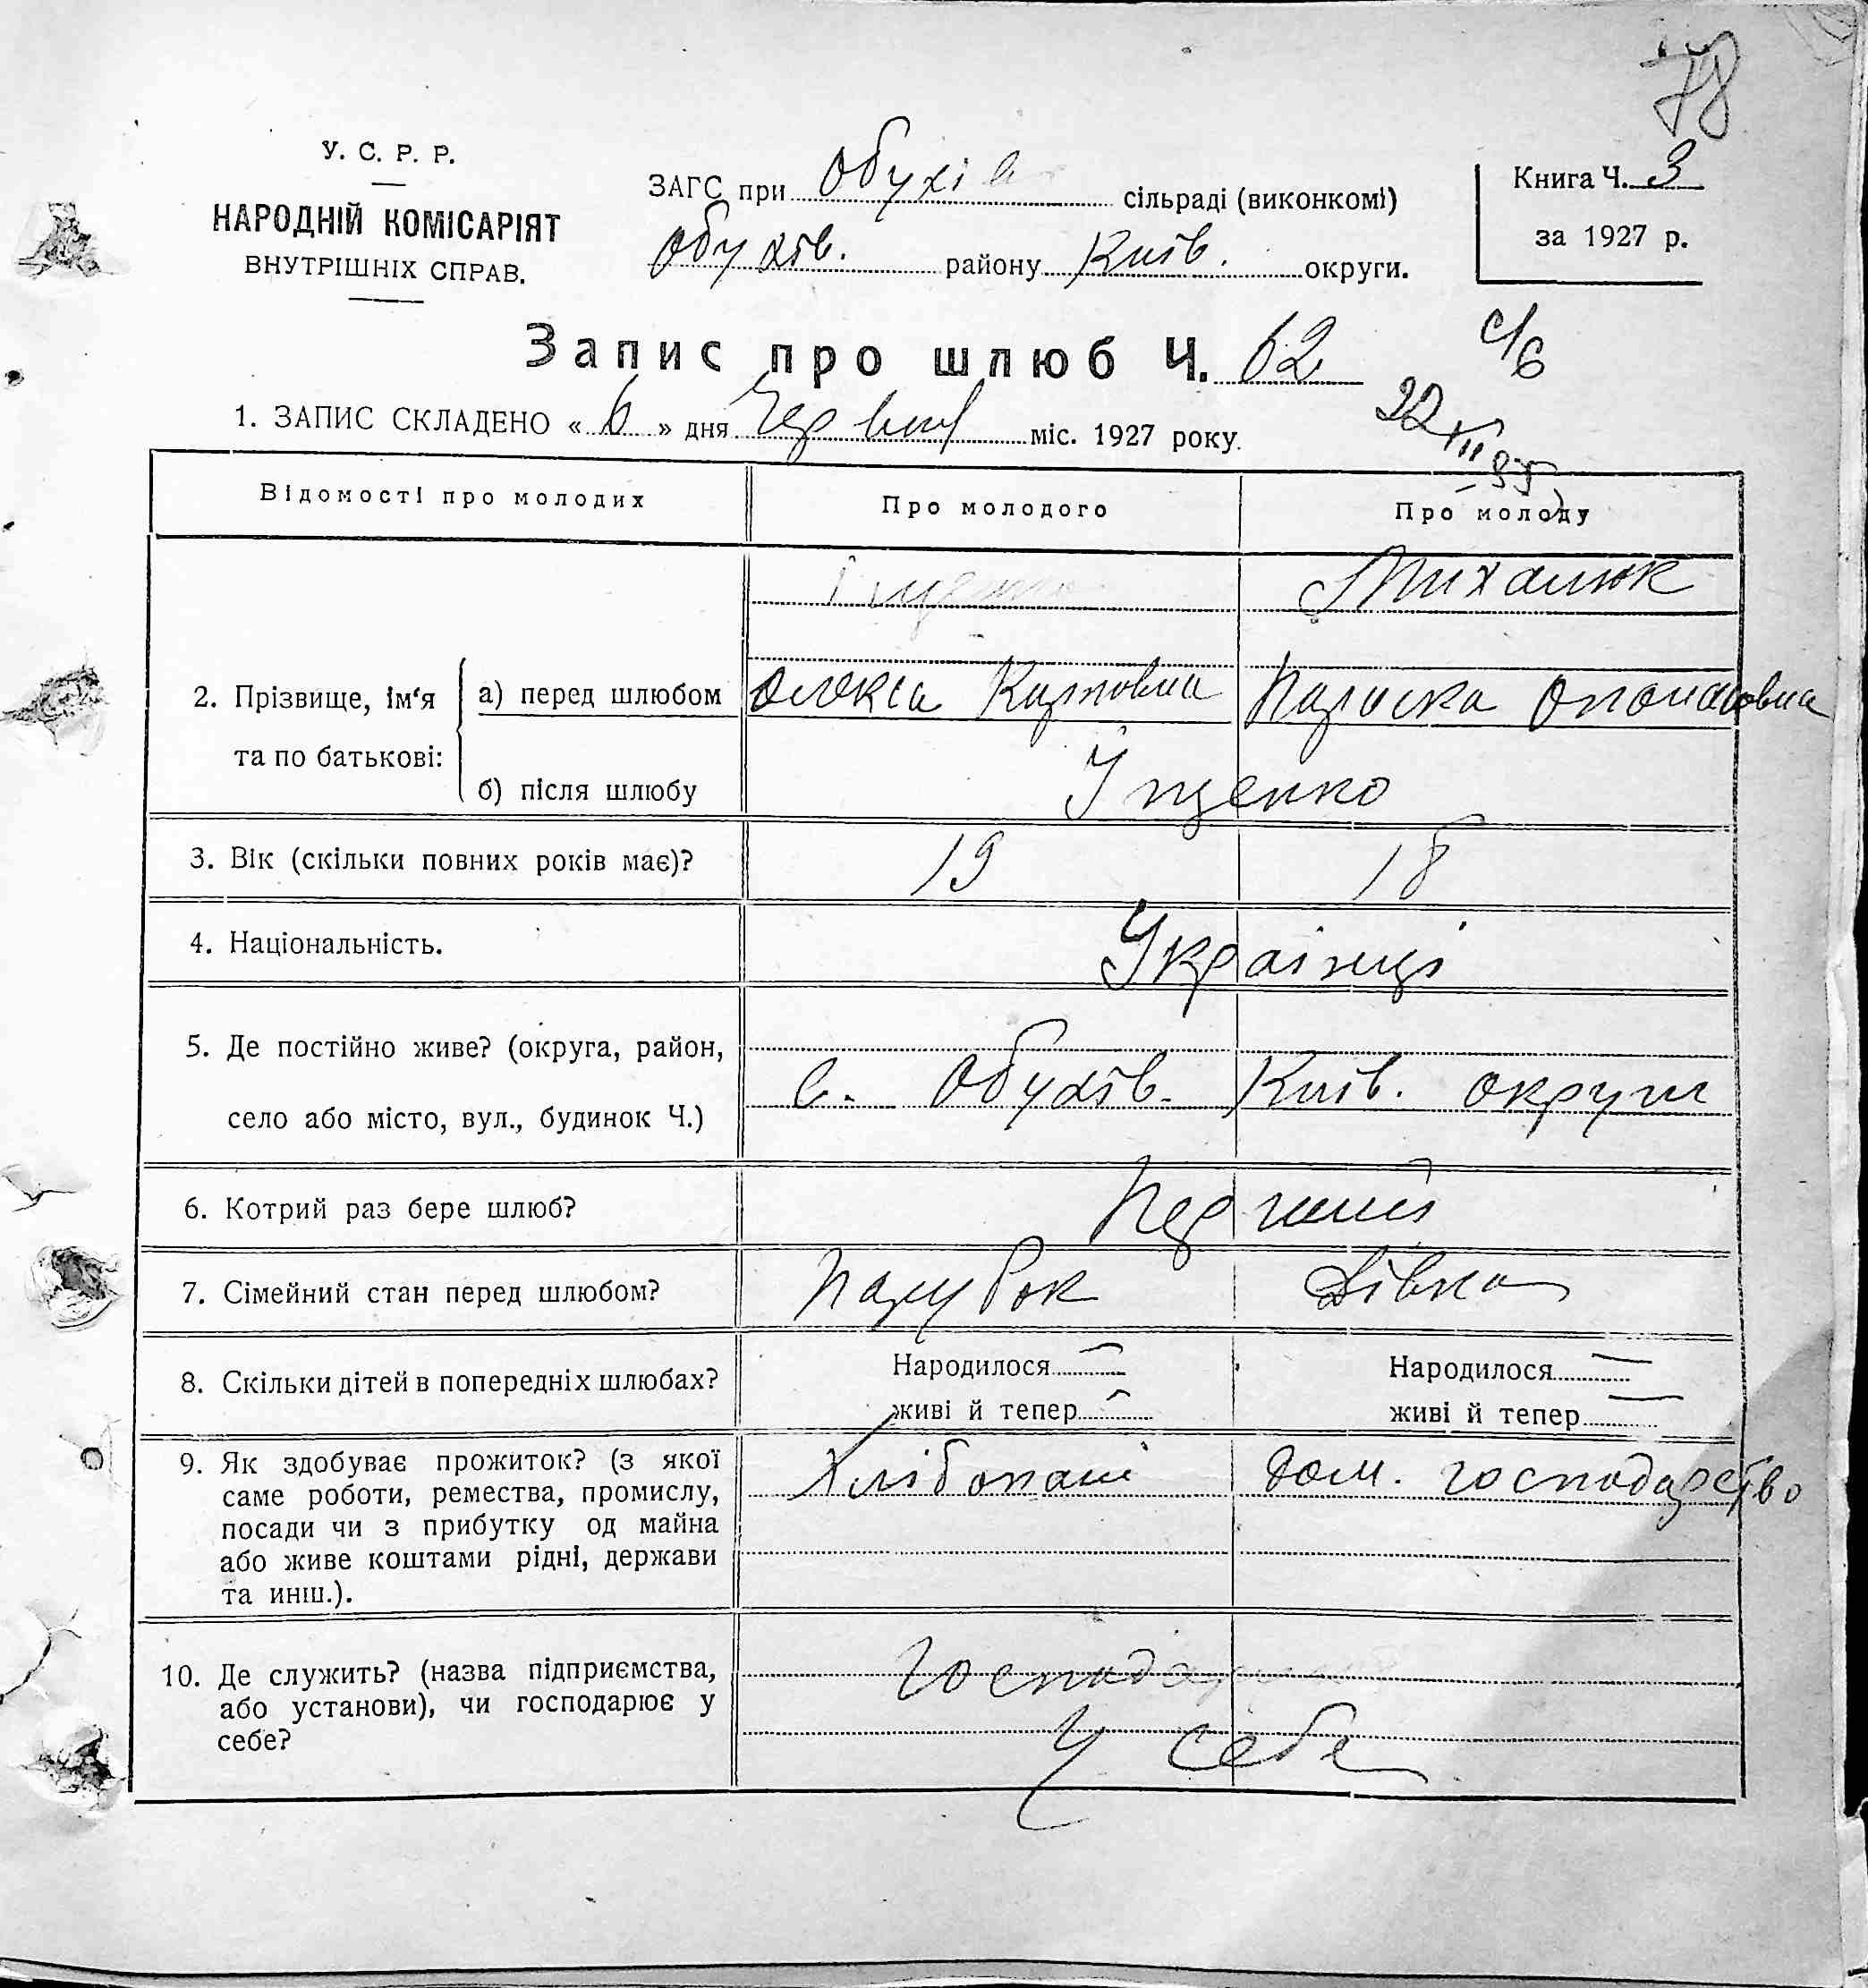 78
У. С. Р. Р.
НАРОДНІЙ КОМІСАРІЯТ
ВНУТРІШНІХ СПРАВ.
ЗАГС при Обухів сільраді (виконкомі)
Обухів. району Київ. округи.
Книга Ч. 3
за 1927 р.
Запис про шлюб Ч. 62
с/б
22
1. ЗАПИС СКЛАДЕНО « 6 » дня Червня міс. 1927 року.
Відомості про молодих Про молодого Про молоду
Іщенко Михалюк
2. Прізвище, ім‘я та по батькові: а) перед шлюбом Олекса Карпович Параска Опанасовна
б) після шлюбу Іщенко
3. Вік (скільки повних років має)? 19 18
4. Національність. Українці
5. Де постійно живе? (округа, район,
село або місто, вул., будинок Ч.) с. Обухів. Київ. округи
6. Котрий раз бере шлюб? Перший
7. Сімейний стан перед шлюбом? Парубок Дівка
8. Скільки дітей в попередніх шлюбах? Народилося — Народилося —
живі й тепер — живі й тепер —
9. Як здобуває прожиток? (з якої
саме роботи, ремества, промислу,
посади чи з прибутку од майна
або живе коштами рідні, держави
та инш.). Хлібопаш дом. господарство
10. Де служить? (назва підприємства,
або установи), чи господарює у
себе?
у себе